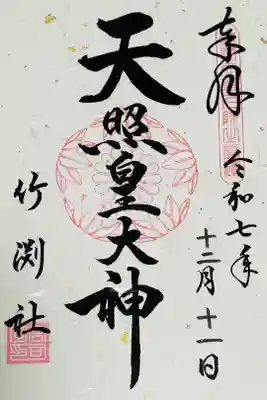 奉拝
令和七年
十二月十一日
天照皇大神
竹渕社